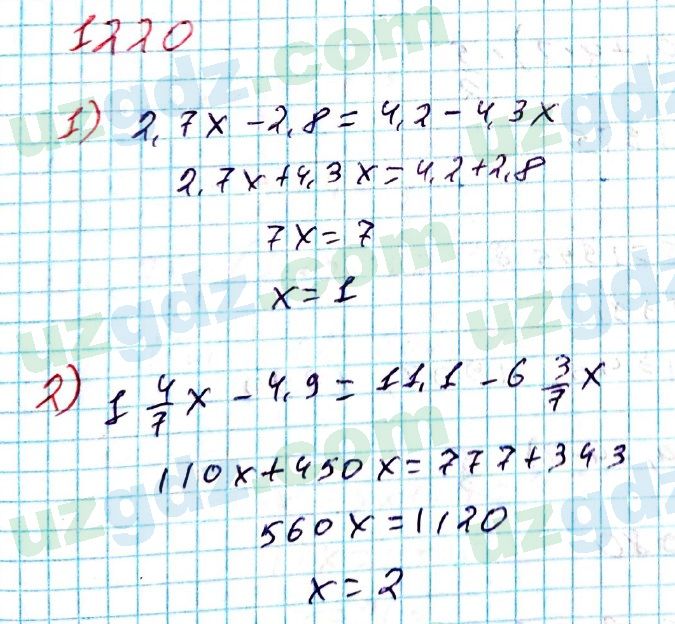 1220
1) 2,7x - 2,8 = 4,2 - 4,3x
2,7x + 4,3x = 4,2 + 2,8
7x = 7
x = 1
2) 1 4/7 x - 4,9 = 11,1 - 6 3/7 x
110x + 450x = 777 + 343
560x = 1120
x = 2
uzgdz.com
uzgdz.com
uzgdz.com
uzgdz
uzgdz
uzgdz